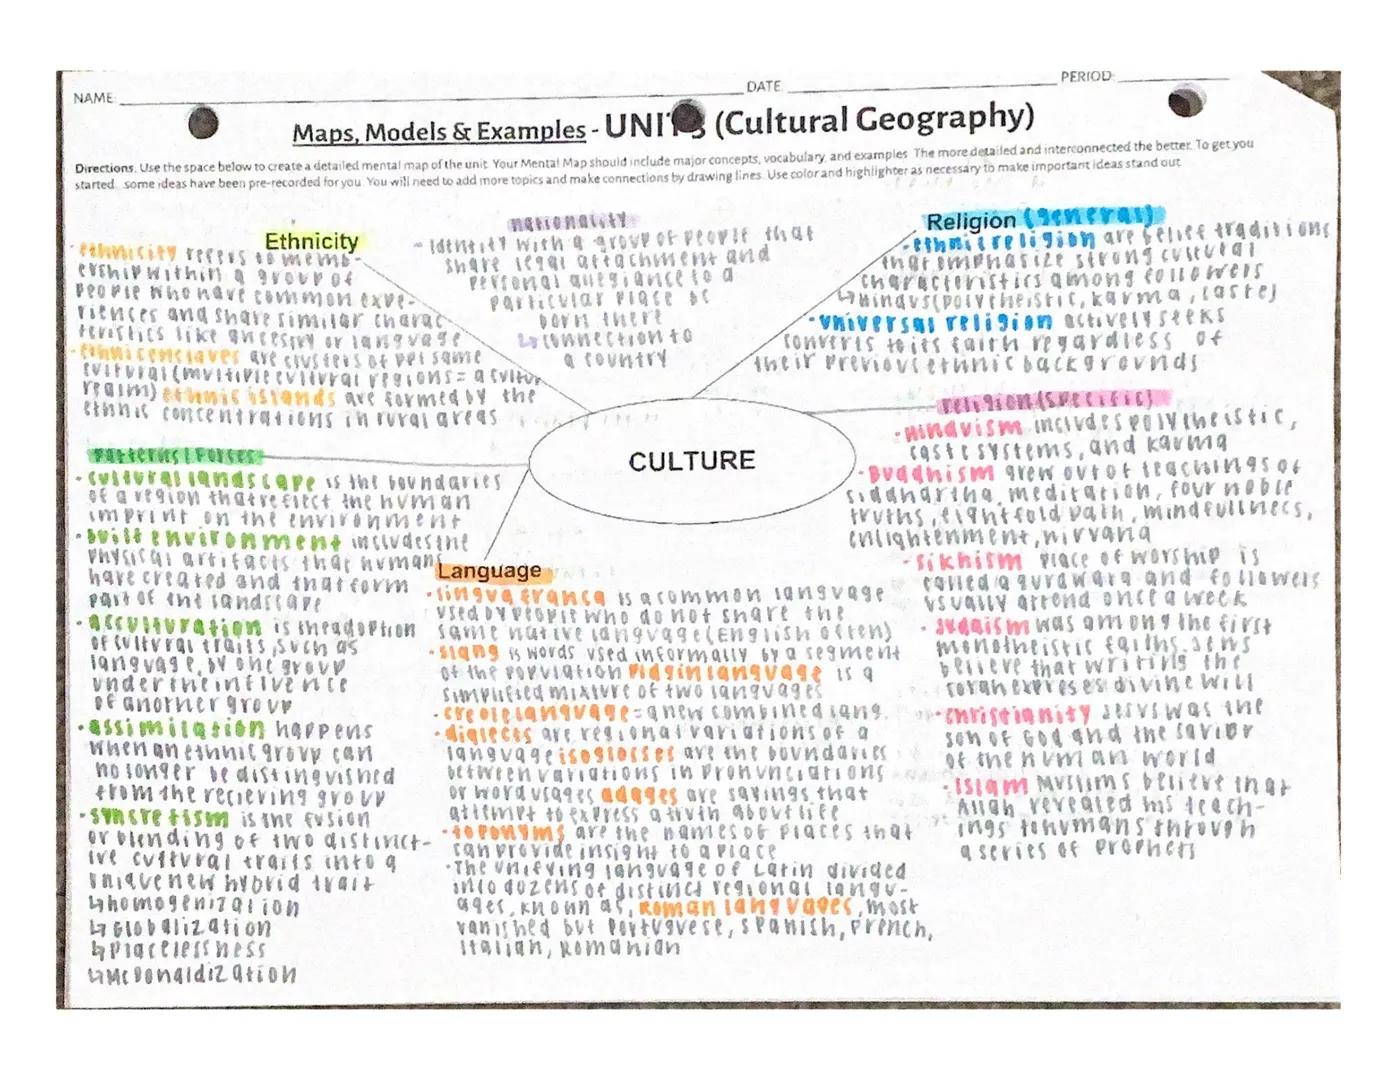 NAME:
DATE
PERIOD:
Maps, Models & Examples - UNIT 3 (Cultural Geography)
Directions. Use the space below to create a detailed mental map of the unit. Your Mental Map should include major concepts, vocabulary, and examples. The more detailed and interconnected the better. To get you
started, some ideas have been pre-recorded for you. You will need to add more topics and make connections by drawing lines. Use color and highlighter as necessary to make important ideas stand out.
Ethnicity
ethnicity refers to memb-
ership within a group of
people who have common expe-
riences and share similar charac
teristics like ancestry or language
ethnic enclaves are clusters of ppl same
cultural (multiple cultural regions = a cultur
realm) ethnic islands are formed by the
ethnic concentrations in rural areas
nationality
- identity with a group of people that
share legal attachment and
personal allegiance to a
particular place bc
born there
↳ connection to
a country
Religion (general)
·ethnic religion are belief traditions
that emphasize strong cultural
characteristics among followers
↳Hindus (polytheistic, karma, caste)
·universal religion actively seeks
converts to its faith regardless of
their previous ethnic backgrounds
religion (specific)
·Hinduism includes polytheistic,
caste systems, and karma
·Buddhism grew out of teachings of
siddhartha, meditation, four noble
truths, eightfold path, mindfullness,
enlightenment, nirvana
·Sikhism place of worship is
called a gurdwara and followers
usually attend once a week
·Judaism was among the first
monotheistic faiths. Jews
believe that writing the
torah expreses divine will
·Christianity Jesus was the
son of God and the savior
of the human world
·Islam Muslims believe that
Allah revealed his teach-
ings to humans through
a series of prophets
CULTURE
Patterns/Forses
·cultural landscape is the boundaries
of a region that reflect the human
imprint on the environment
·built environment includes the
physical artifacts that humans
have created and that form
part of the landscape
·acculturation is the adoption
of cultural traits, such as
language, by one group
under the influence
of another group
·assimilation happens
when an ethnic group can
no longer be distinguished
from the recieving group
·syncretism is the fusion
or blending of two distinct-
ive cultural traits into a
unique new hybrid trait
↳homogenization
↳Globalization
↳Placelessness
↳McDonaldization
Language
·lingua franca is a common language
used by people who do not share the
same native language (English often)
·slang is words used informally by a segment
of the population pidgin language is a
simplified mixture of two languages
·creole language = a new combined lang.
·dialects are regional variations of a
language isoglosses are the boundaries
between variations in pronunciations
or word usages adages are sayings that
attempt to express a truth about life
·toponyms are the names of places that
can provide insight to a place
·The unifying language of Latin divided
into dozens of distinct regional langu-
ages, known as, Roman languages, most
vanished but Portuguese, Spanish, French,
Italian, Romanian